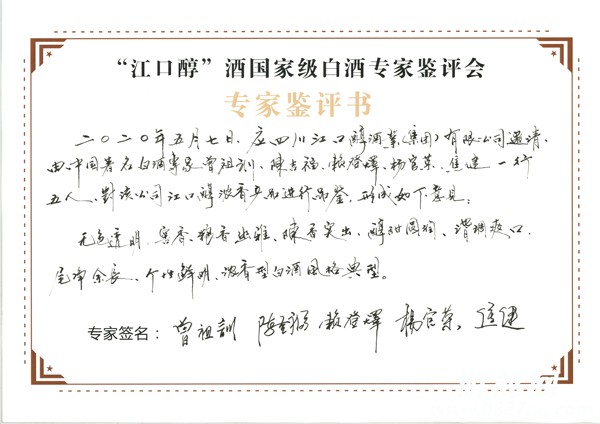 “江口醇”酒国家级白酒专家鉴评会
专家鉴评书
二〇二〇年五月七日，应四川江口醇酒业（集团）有限公司邀请，
由中国著名白酒专家曾祖训、陈吉福、赖登燡、杨官荣、焦健一行
五人，对该公司江口醇浓香产品进行品鉴，形成如下意见：
无色透明、窖香、粮香幽雅、陈香突出、醇甜圆润、谐调爽口、
尾净余长、个性鲜明、浓香型白酒风格典型。
专家签名： 曾祖訓 赖登燡 楊官荣